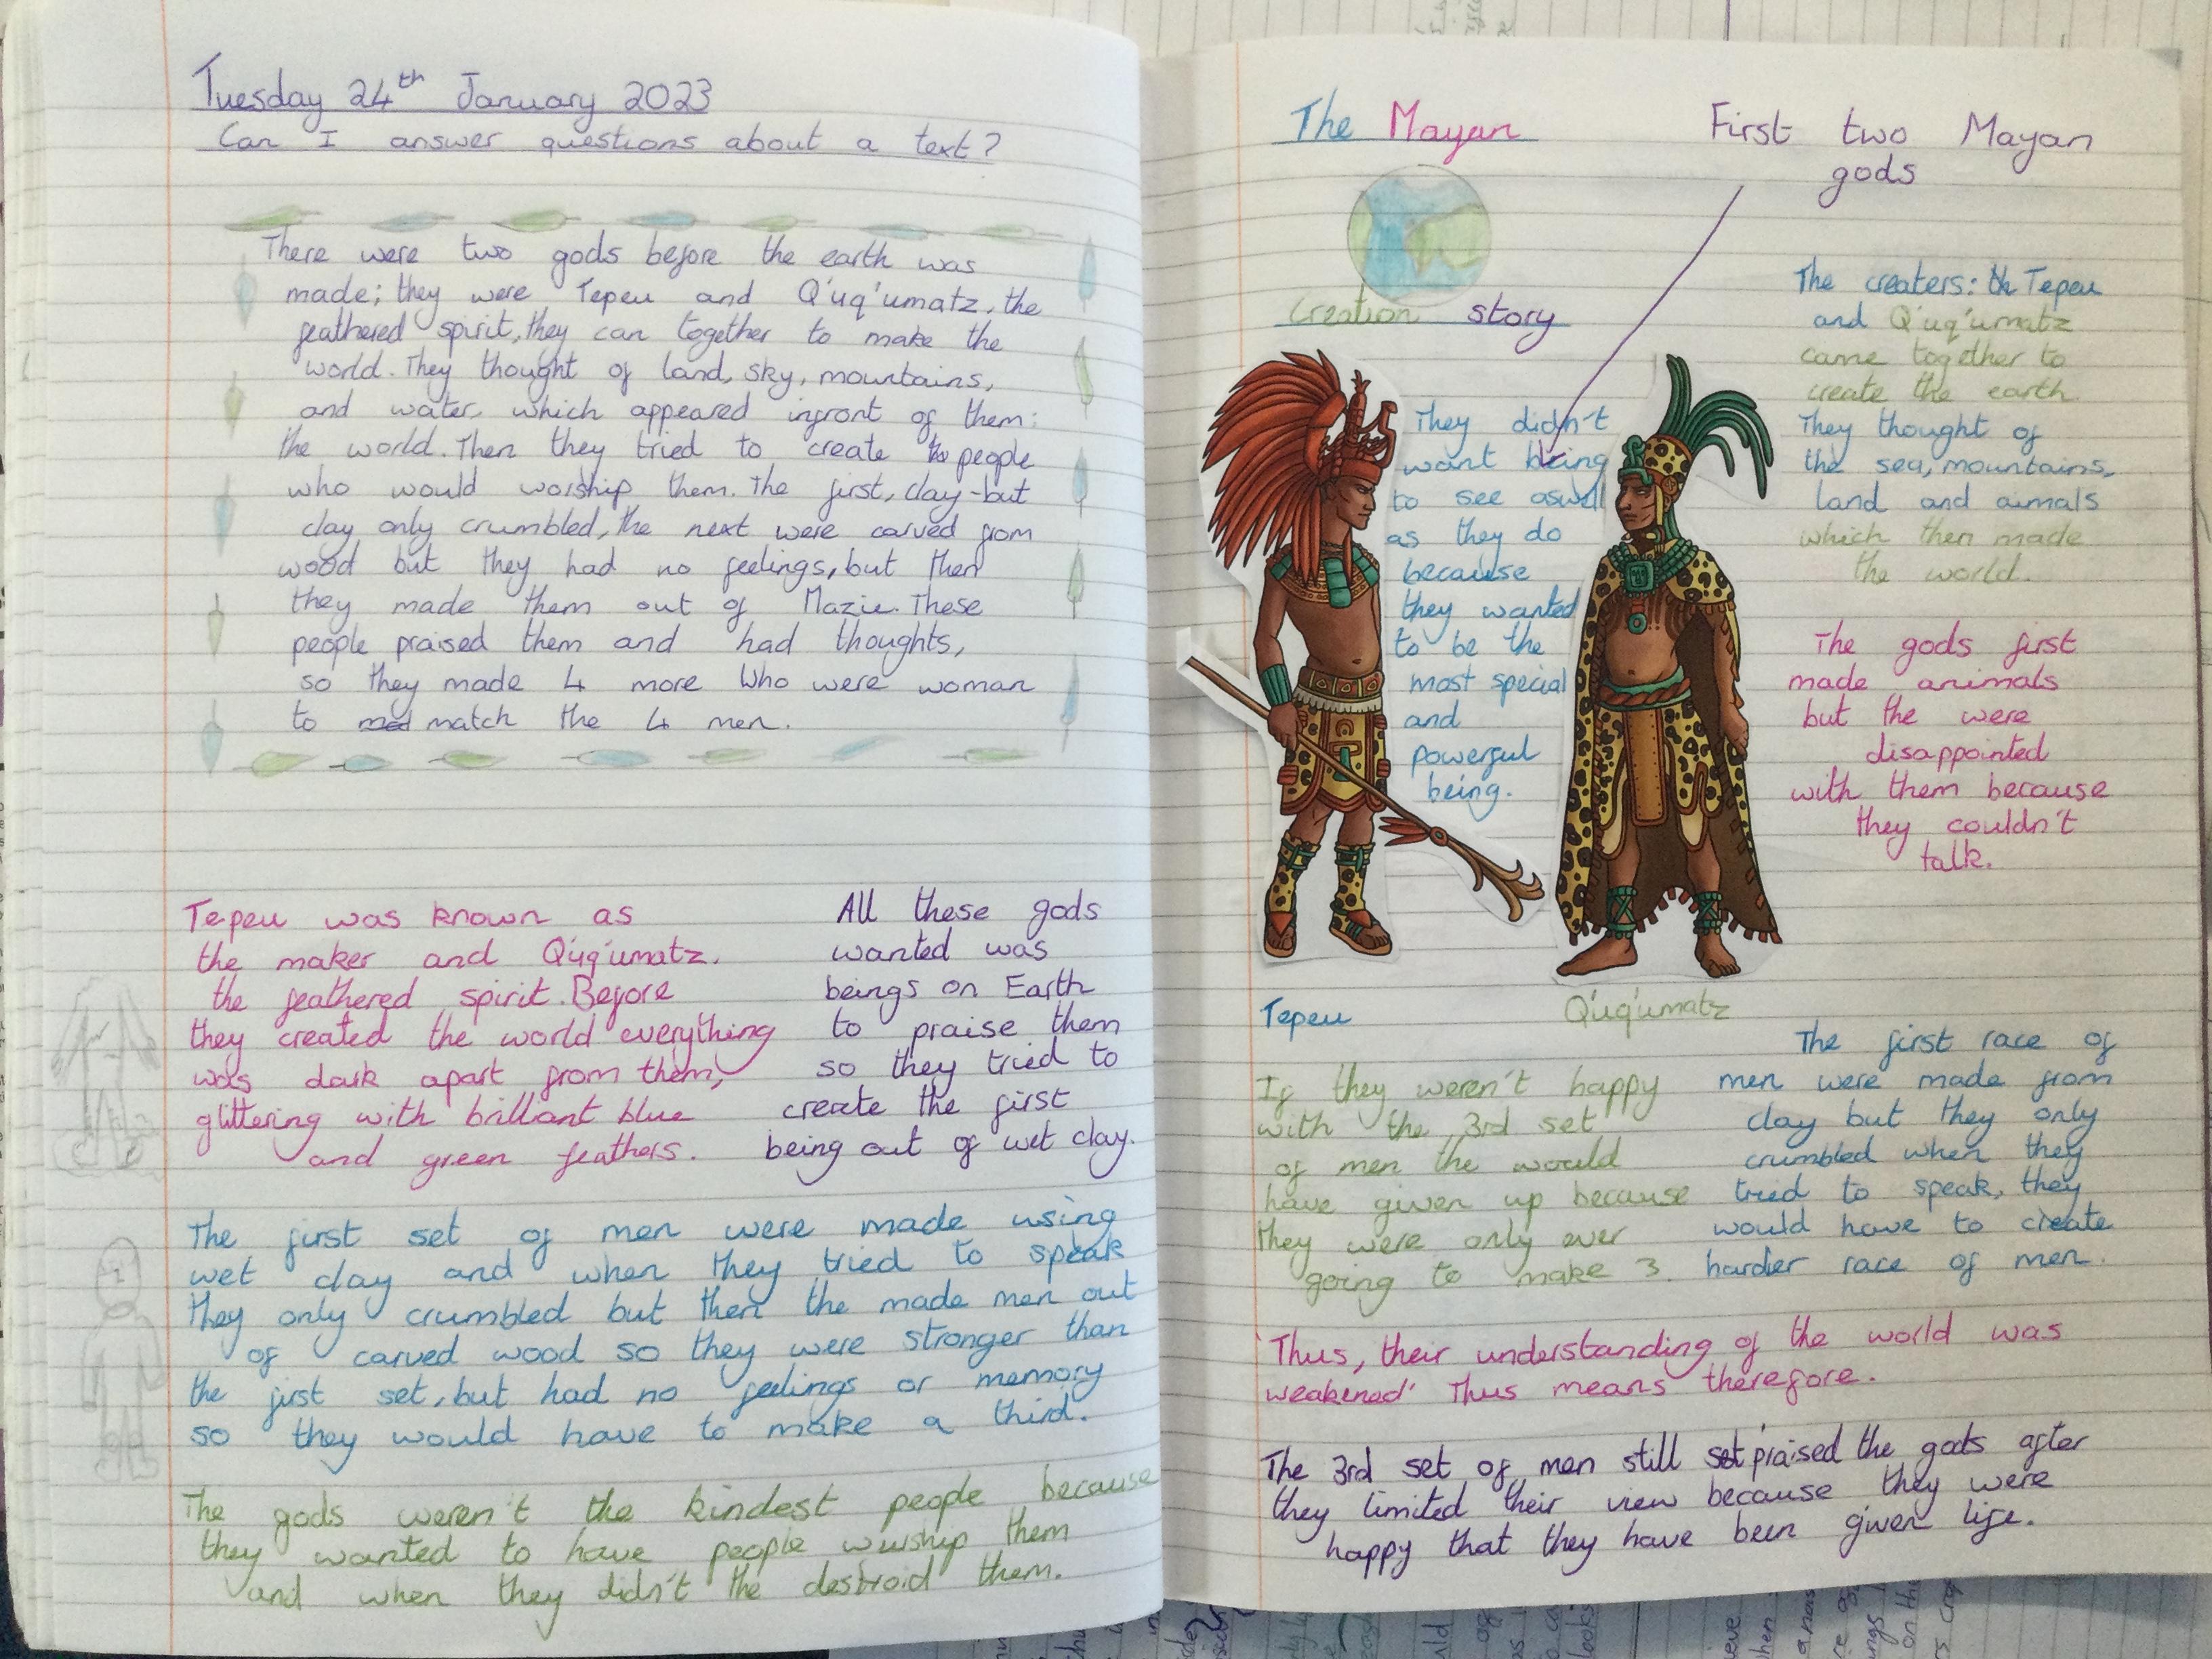 Tuesday 24th January 2023
Can I answer questions about a text?
There were two gods before the earth was
made; they were Tepeu and Q'uq'umatz, the
feathered spirit, they can together to make the
world. They thought of land, sky, mountains,
and water, which appeared infront of them:
the world. Then they tried to create people
who would worship them. The first, clay-but
clay only crumbled, the next were carved from
wood but they had no feelings, but then
they made them out of Mazie. These
people praised them and had thoughts,
so they made 4 more who were woman
to match the 4 men.
Tepeu was known as
the maker and Q'uq'umatz.
the feathered spirit. Before
they created the world everything
was dark apart from them,
glittering with brillant blue
and green feathers.
All these gods
wanted was
beings on Earth
to praise them
so they tried to
create the first
being out of wet clay.
The first set of men were made using
wet clay and when they tried to speak
they only crumbled but then the made men out
of carved wood so they were stronger than
the first set, but had no feelings or memory
so they would have to make a third.
The gods weren't the kindest people because
they wanted to have people wirship them
and when they didn't the destroid them.
The Mayan
creation story
First two Mayan
gods
They didn't
want being
to see aswell
as they do
because
they wanted
to be the
most special
and
powerful
being.
The creaters: Tepeu
and Q'uq'umatz
came together to
create the earth.
They thought of
the sea, mountains,
land and aimals
which then made
the world.
The gods first
made animals
but the were
disappointed
with them because
they couldn't
talk.
Tepeu
Q'uq'umatz
If they weren't happy
with the 3rd set
of men the would
have given up because
they were only ever
going to make 3.
The first race of
men were made from
clay but they only
crumbled when they
tried to speak, they
would have to create
harder race of men.
'Thus, their understanding of the world was
weakened' Thus means therefore.
The 3rd set of men still praised the gods after
they limited their view because they were
happy that they have been given life.